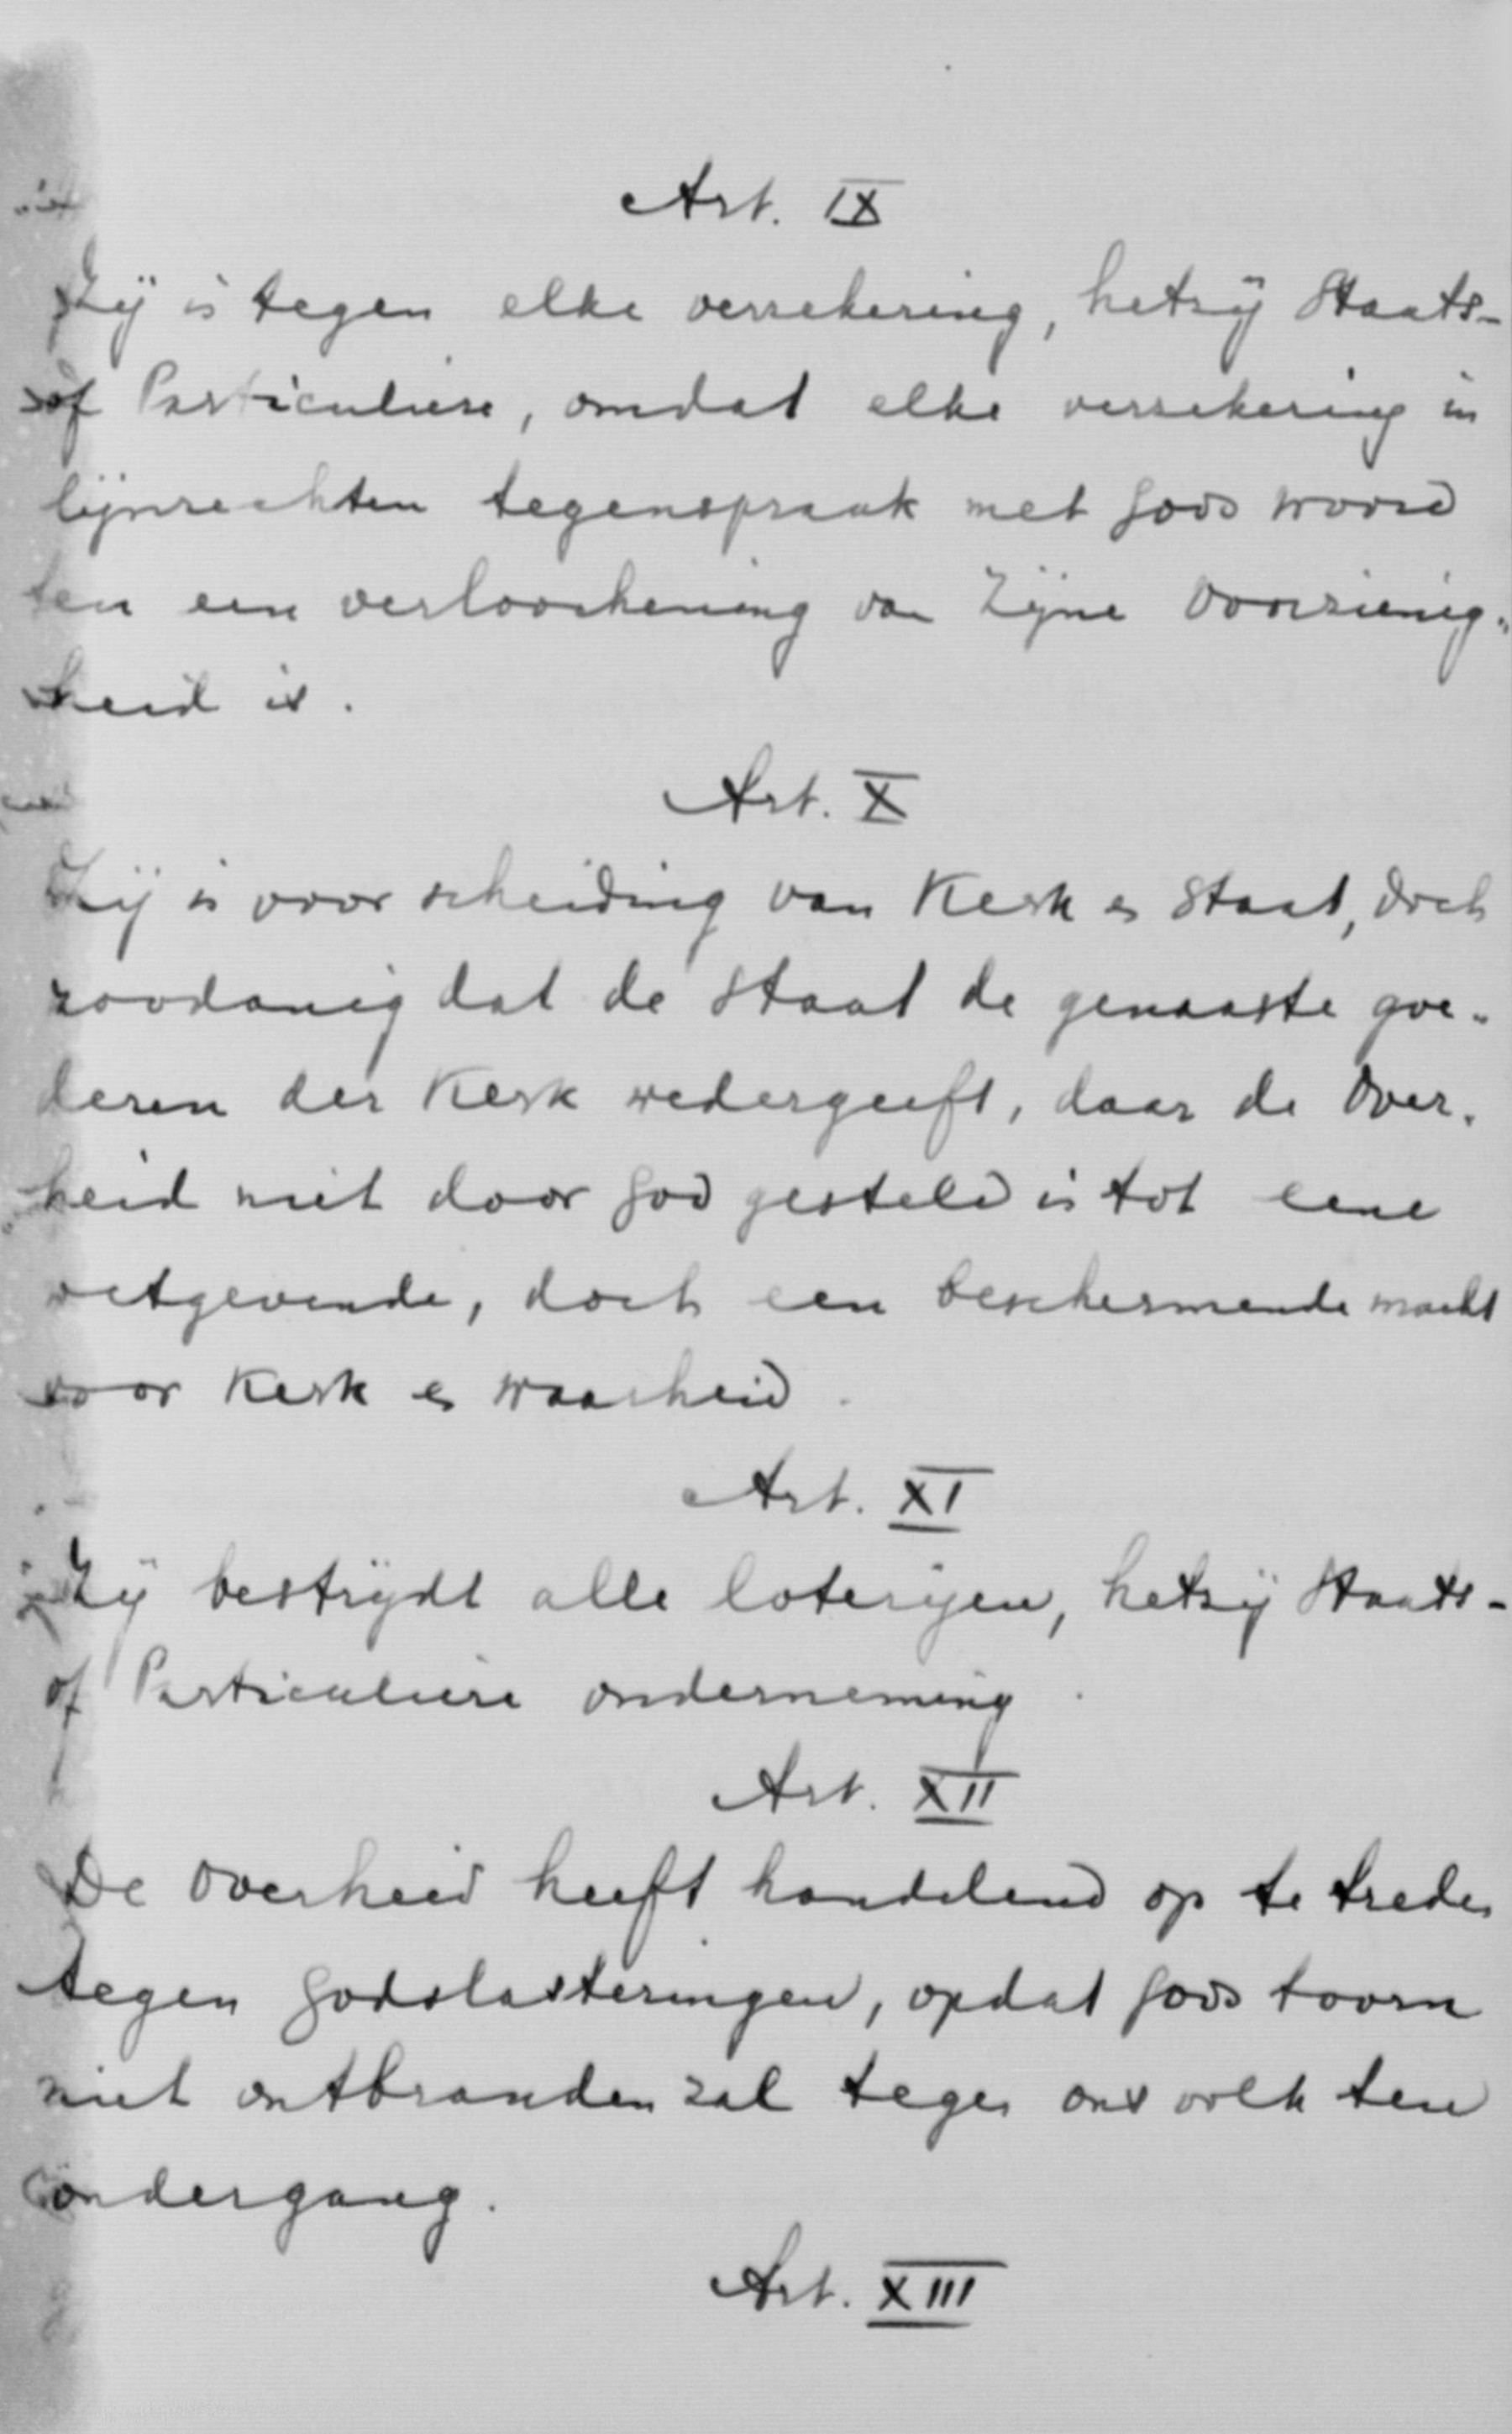 Art. IX
Zij is tegen elke verzekering, hetzij Staats-
of Particuliere, omdat elke verzekering in
lijnrechten tegenspraak met Gods woord
en een verloochening van Zijne Voorzienig-
heid is.
Art. X
Zij is voor scheiding van Kerk en Staat, doch
zoodanig dat de Staat de genaaste goe-
deren der Kerk wedergeeft, daar de Over-
heid niet door God gesteld is tot eene
wetgevende, doch een beschermende macht
voor Kerk en waarheid.
Art. XI
Zij bestrijdt alle loterijen, hetzij Staats-
of Particuliere onderneming.
Art. XII
De Overheid heeft handelend op te treden
tegen Godslasteringen, opdat Gods toorn
niet ontbranden zal tegen ons volk ten
ondergang.
Art. XIII